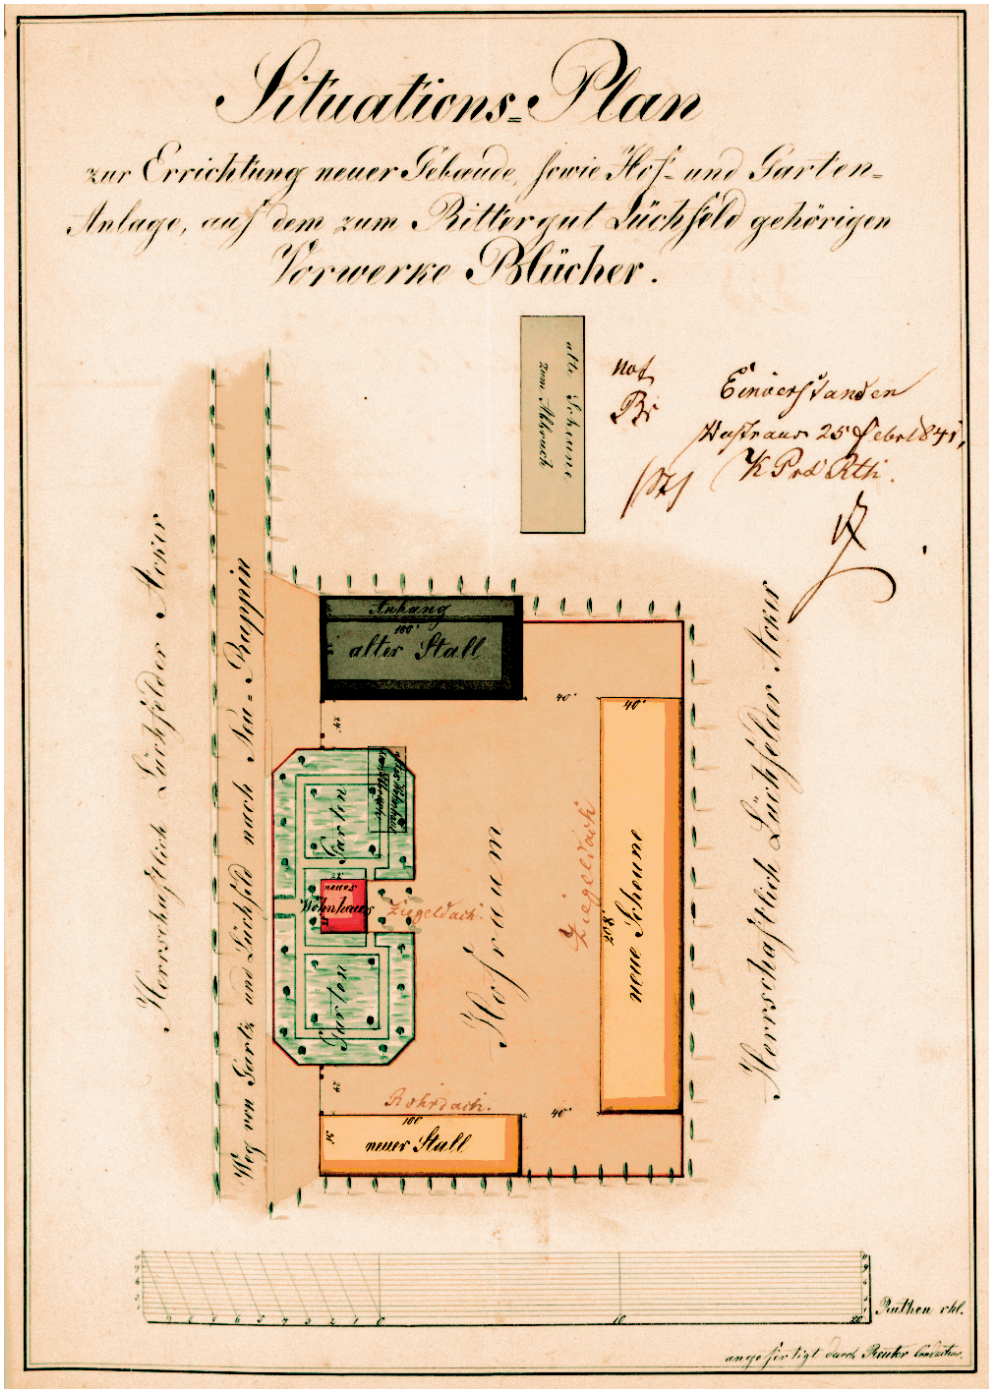 Situations-Plan
zur Errichtung neuer Gebäude, sowie Hof- und Garten-
Anlage, auf dem zum Rittergut Lüchfeld gehörigen
Vorwerke Blücher.
alte Scheune
zum Abbruch
not
Br
Einverstanden
25 Febr 1841,
K Prd Rth.
Herrschaftlich Lüchfelder Acker
Weg von Gartz und Lüchfeld nach Neu-Ruppin
Anhang
100'
alter Stall
40'
40'
24'
Garten
22'
neues
Wohnhaus
Ziegeldach.
Garten
Hofraum
Ziegeldach
208'
neue Scheune
Herrschaftlich Lüchfelder Acker
24'
Rohrdach.
100'
neuer Stall
40'
9 8 7 6 5 4 3 2 1 0 10 20
Ruthen rhl.
angefertigt durch Reuter Conducteur.